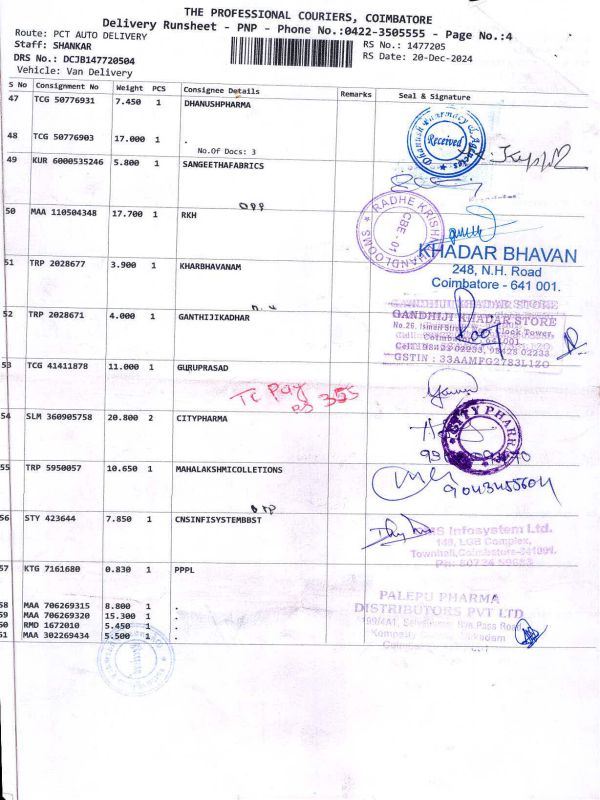 THE PROFESSIONAL COURIERS, COIMBATORE
Delivery Runsheet - PNP - Phone No.:0422-3505555 - Page No.:4
Route: PCT AUTO DELIVERY
RS No.: 1477205
Staff: SHANKAR
RS Date: 20-Dec-2024
DRS No.: DCJB147720504
Vehicle: Van Delivery
S No Consignment No Weight PCS Consignee Details Remarks Seal & Signature
47 TCG 50776931 7.450 1 DHANUSHPHARMA
Dhanush Pharmacy & Agencies
Received
48 TCG 50776903 17.000 1 .
No.Of Docs: 3
49 KUR 6000535246 5.800 1 SANGEETHAFABRICS
OPP
RADHE KRISHNA HANDLOOMS
CBE - 01
50 MAA 110504348 17.700 1 RKH
KHADAR BHAVAN
248, N.H. Road
Coimbatore - 641 001.
51 TRP 2028677 3.900 1 KHARBHAVANAM
52 TRP 2028671 4.000 1 GANTHIJIKADHAR
GANDHIJI KHADAR STORE
GANDHIJI KHADAR STORE
No.26, Ismail Street, Clock Tower,
Coimbatore - 641 001
Cell: 98422 02233, 98428 02233
GSTIN : 33AAMFG2783L1ZO
53 TCG 41411878 11.000 1 GURUPRASAD
To Pay
RS 355
54 SLM 360905758 20.800 2 CITYPHARMA
CITY PHARMA
55 TRP 5950057 10.650 1 MAHALAKSHMICOLLETIONS
9043455604
56 STY 423644 7.850 1 CNSINFISYSTEMBBST
Infosystem Ltd.
149, LGB Complex,
Townhall, Coimbatore-641001.
57 KTG 7161680 0.830 1 PPPL
PALEPU PHARMA
DISTRIBUTORS PVT LTD
199/4A1, Bye Pass Road,
58 MAA 706269315 8.800 1 .
59 MAA 706269320 15.300 1 .
60 RMD 1672010 5.450 1 .
61 MAA 302269434 5.500 1 .